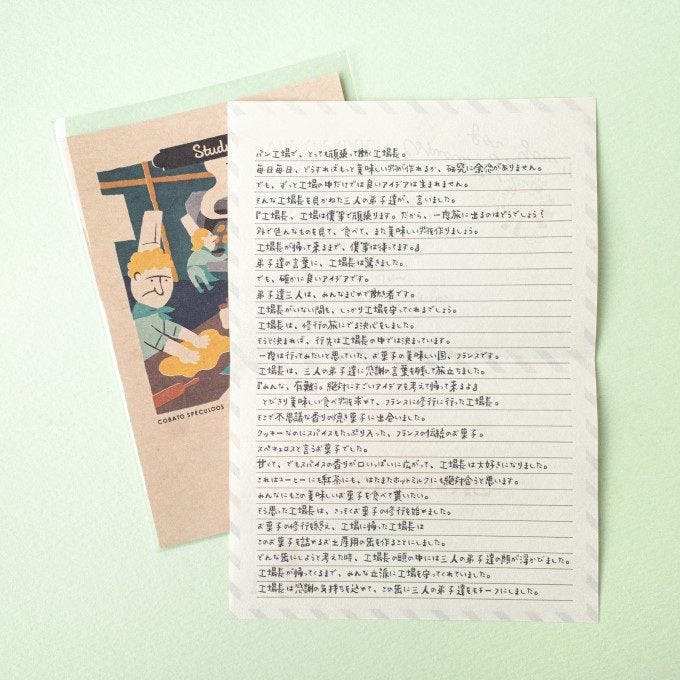 Study
CORATO SPÉCULOOS
パン工場で、とっても頑張って働く工場長。
毎日毎日、どうすればもっと美味しい物が作れるか、研究に余念がありません。
でも、ずっと工場の中だけでは良いアイデアは生まれません。
そんな工場長を見かねた三人の弟子達が、言いました。
『工場長、工場は僕等が頑張ります。だから、一度旅に出るのはどうでしょう?
外で色んなものを見て、食べて、また美味しい物を作りましょう。
工場長が帰って来るまで、僕等は待ってます。』
弟子達の言葉に、工場長は驚きました。
でも、確かに良いアイデアです。
弟子達三人は、みんなまじめで働き者です。
工場長がいない間も、しっかり工場を守ってくれるでしょう。
工場長は、修行の旅にでる決心をしました。
そうと決まれば、行先は工場長の中では決まっています。
一度は行ってみたいと思っていた、お菓子の美味しい国、フランスです。
工場長は、三人の弟子達に感謝の言葉を残して旅立ちました。
『みんな、有難う。絶対にすごいアイデアを考えて帰って来るよ』
とびきり美味しい食べ物を求めて、フランスに修行に行った工場長。
そこで不思議な香りの焼き菓子に出会いました。
クッキーなのにスパイスもたっぷり入った、フランスの伝統のお菓子。
スペキュロスと言うお菓子でした。
甘くて、でもスパイスの香りが口いっぱいに広がって、工場長は大好きになりました。
これはコーヒーにも紅茶にも、はたまたホットミルクにも絶対合うと思います。
みんなにもこの美味しいお菓子を食べて貰いたい。
そう思った工場長は、さっそくお菓子の修行を始めました。
お菓子の修行を終え、工場に帰った工場長は
このお菓子を詰めるお土産用の缶を作ることにしました。
どんな缶にしようと考えた時、工場長の頭の中には三人の弟子達の顔が浮かびました。
工場長が帰ってくるまで、みんな立派に工場を守ってくれていました。
工場長は感謝の気持ちを込めて、この缶に三人の弟子達をモチーフにしました。